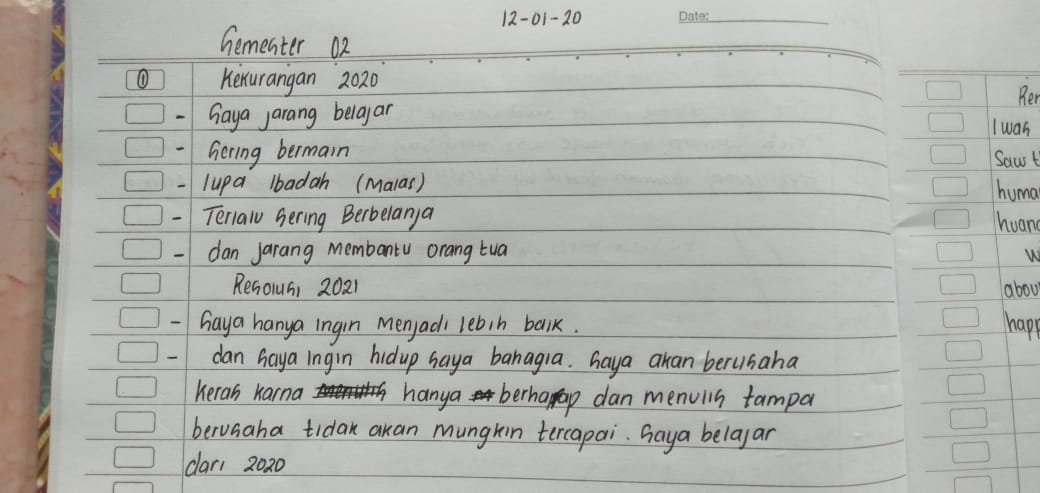 12-01-20
Date:
Semester 02
① Kekurangan 2020
- Saya jarang belajar
- Sering bermain
- lupa Ibadah (Malas)
- Terlalu Sering Berbelanja
- dan jarang Membantu orang tua
Resolusi 2021
- Saya hanya ingin Menjadi lebih baik.
- dan Saya Ingin hidup Saya bahagia. Saya akan berusaha
keras karna hanya berharap dan menulis tampa
berusaha tidak akan Mungkin tercapai. Saya belajar
dari 2020
I was
Saw
huma
huan
W
abou
happ